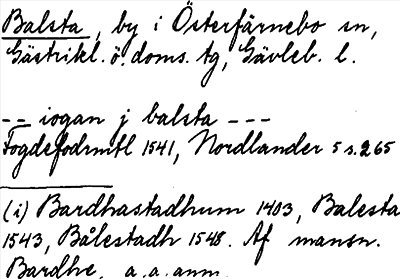 Balsta, by i Österfärnebo sn,
Gästrikl. ö. doms. tg, Gävleb. l.
-- iogan j balsta ---
Fogdefodrmtl 1541, Nordlander 5 s. 265
(i) Bardhastadhum 1403, Balesta
1543, Bålestadh 1548. Af mansn.
Bardhe. a.a. anm.